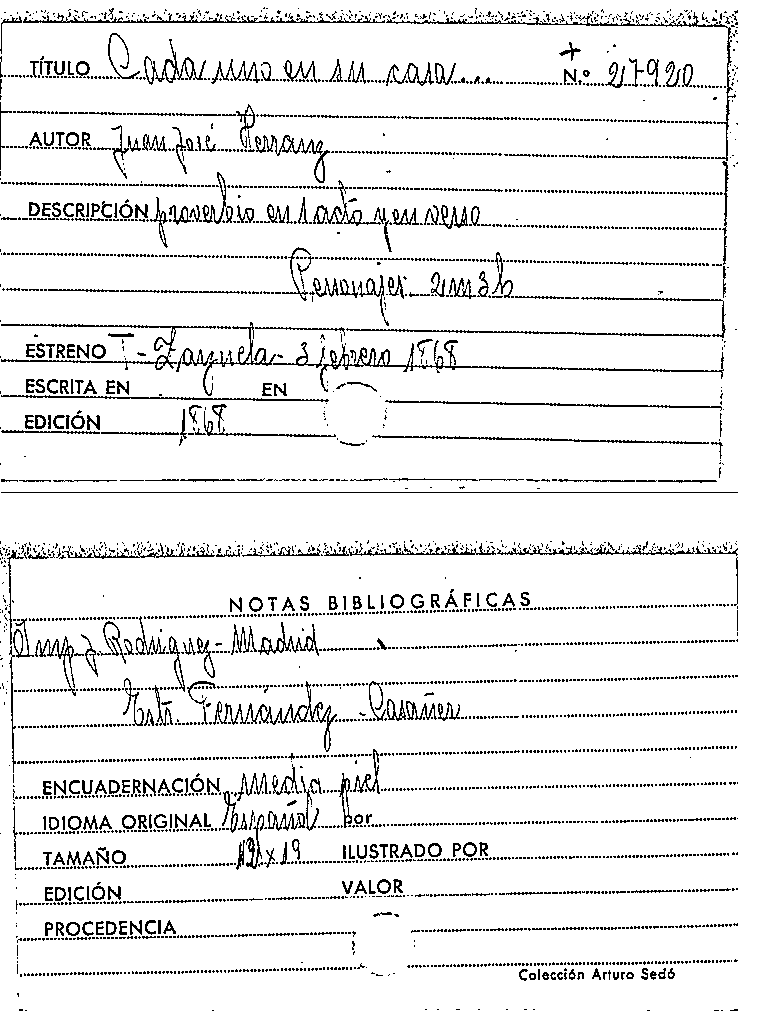 TÍTULO Cada uno en su casa... + N.º 27920
AUTOR Juan José Herranz
DESCRIPCIÓN proverbio en 1 acto y en verso
Personajes 2m 3h
ESTRENO T-Zarzuela-3 febrero 1868
ESCRITA EN EN
EDICIÓN 1868
NOTAS BIBLIOGRÁFICAS
Imp J. Rodriguez-Madrid
Estr. Fernández-Casañer
ENCUADERNACIÓN Media piel
IDIOMA ORIGINAL Español por
TAMAÑO x 19 ILUSTRADO POR
EDICIÓN VALOR
PROCEDENCIA
Colección Arturo Sedó